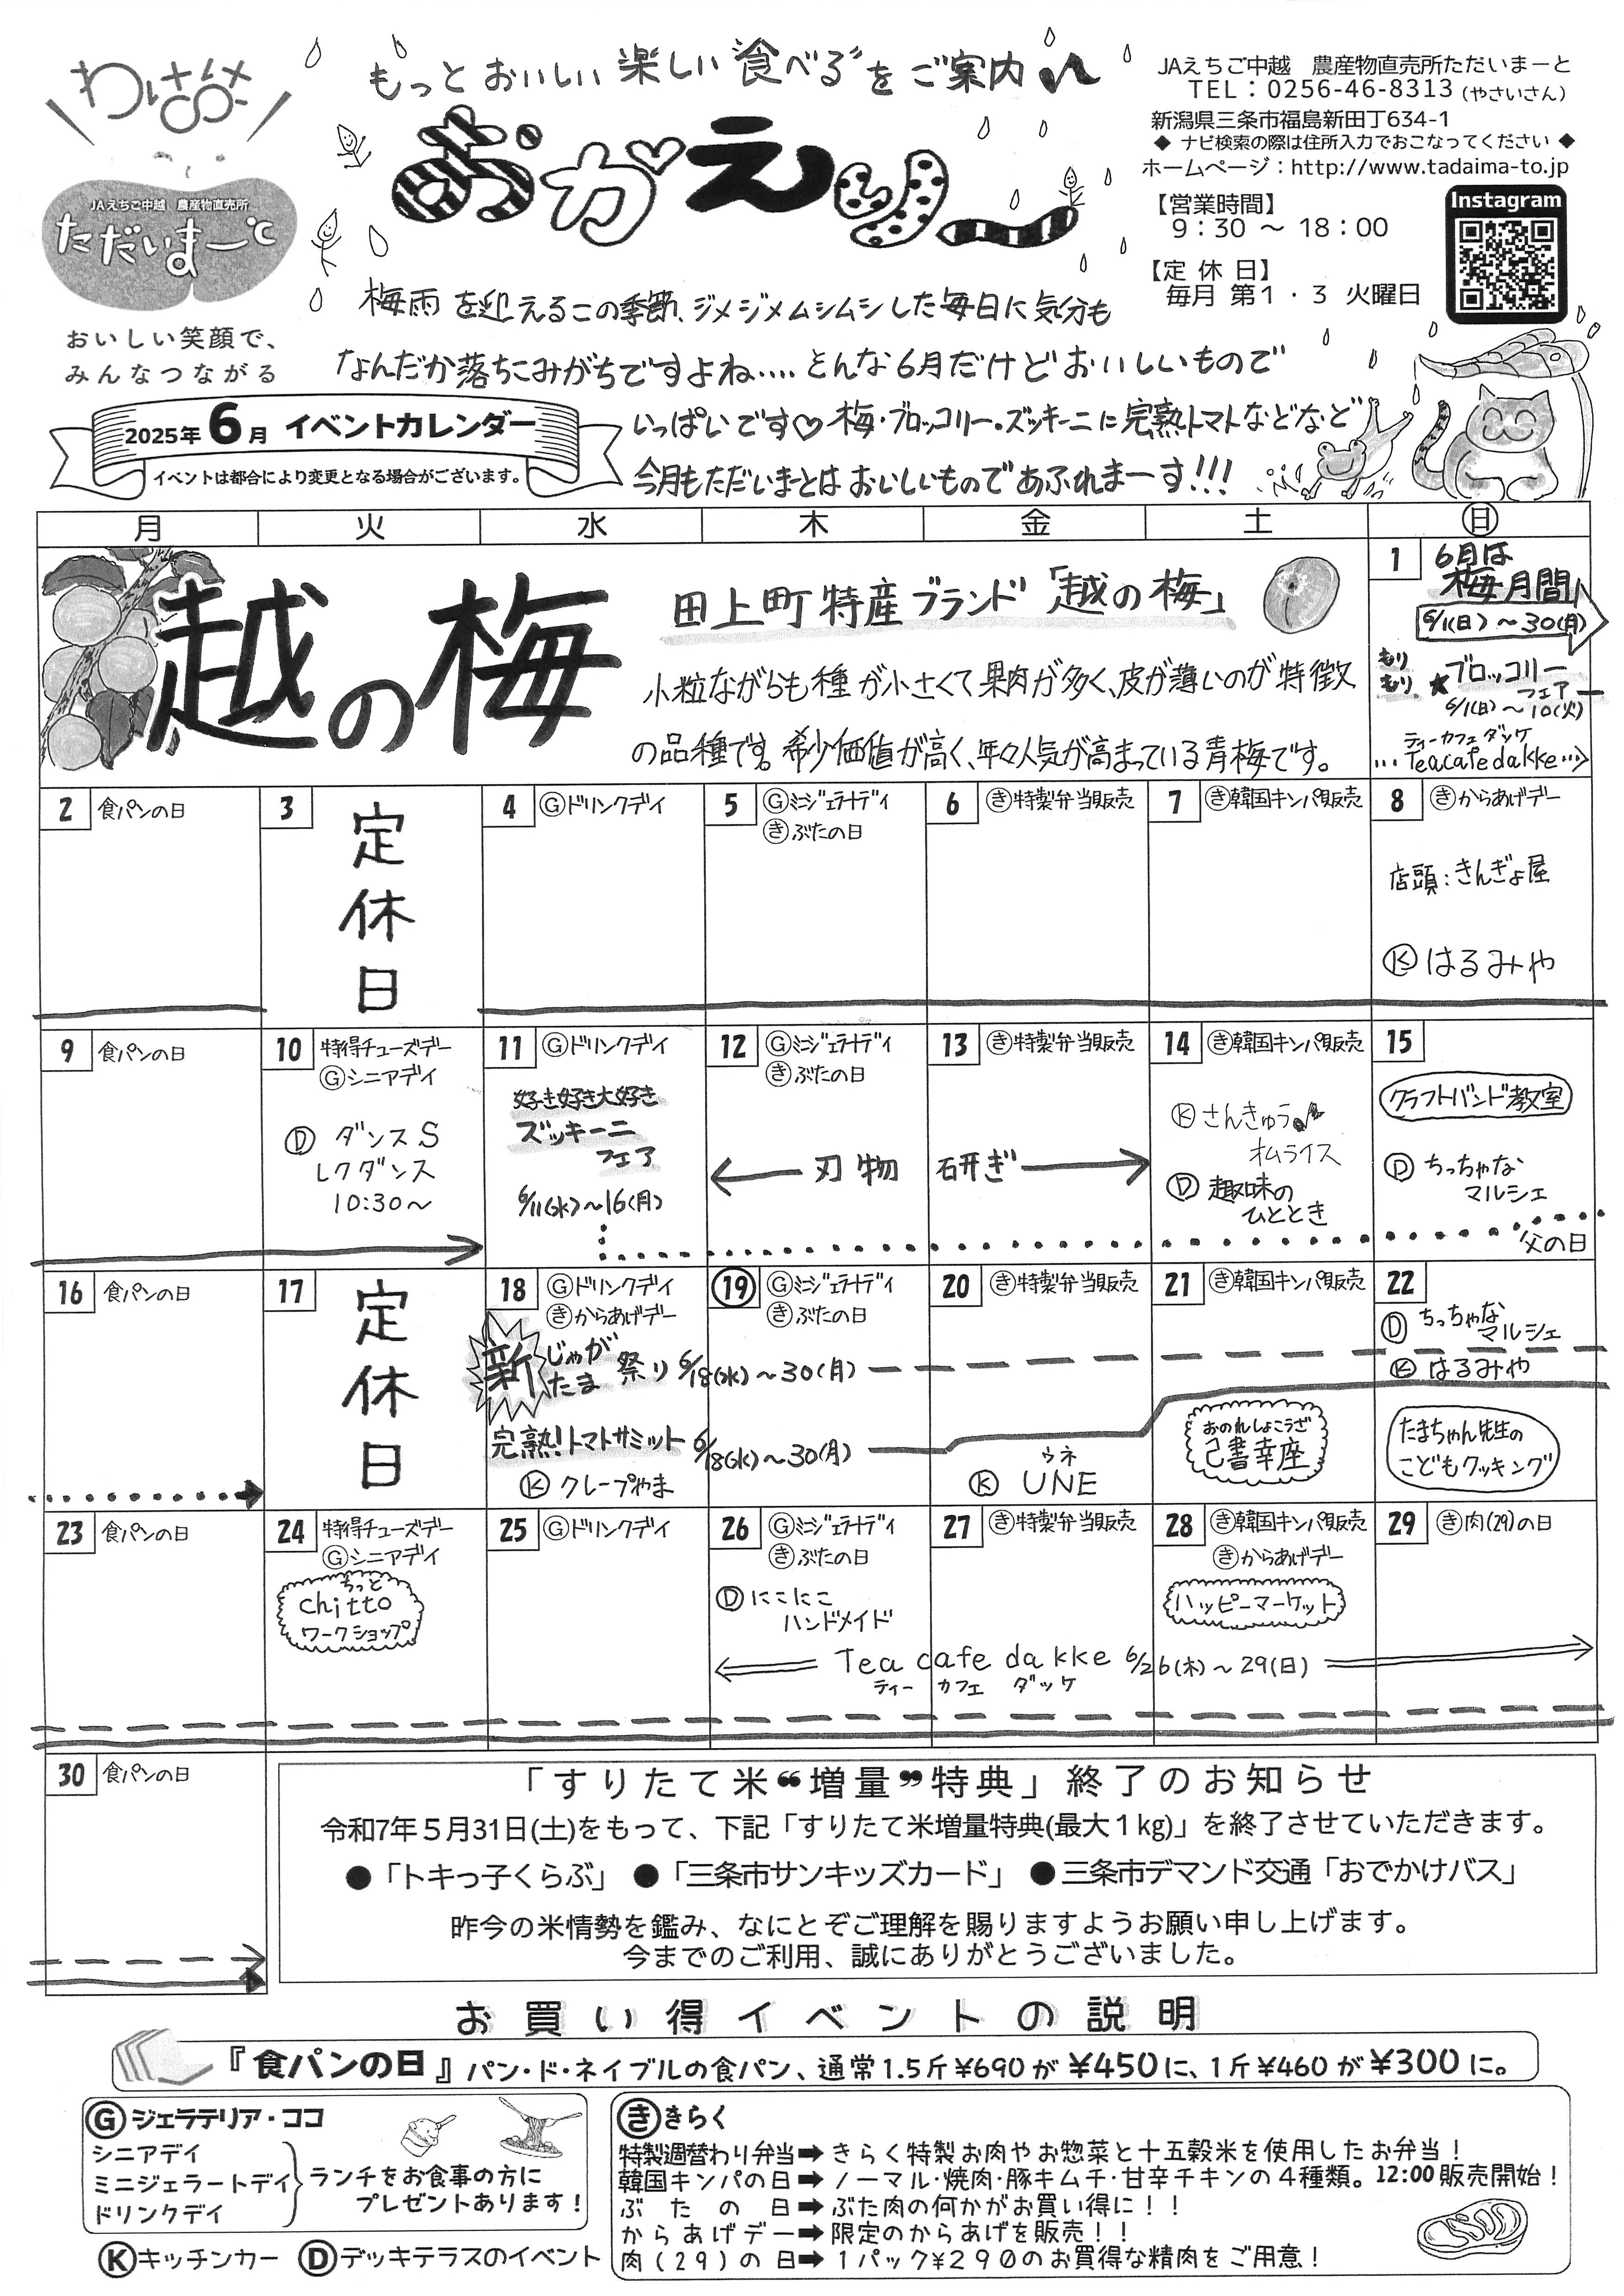 わはは
JAえちご中越 農産物直売所
ただいまーと
おいしい笑顔で、
みんなつながる
もっとおいしい楽しい"食べる"をご案内♪
おかえり
JAえちご中越 農産物直売所ただいまーと
TEL：0256-46-8313（やさいさん）
新潟県三条市福島新田丁634-1
◆ ナビ検索の際は住所入力でおこなってください ◆
ホームページ：http://www.tadaima-to.jp
【営業時間】
9：30 ～ 18：00
【定 休 日】
毎月 第１・３ 火曜日
Instagram
梅雨を迎えるこの季節、ジメジメムシムシした毎日に気分も
なんだか落ちこみがちですよね.... そんな6月だけどおいしいもので
いっぱいです♡ 梅・ブロッコリー・ズッキーニに完熟トマトなどなど
今月もただいまーとはおいしいものであふれまーす!!!
2025年 6月 イベントカレンダー
イベントは都合により変更となる場合がございます。
月 火 水 木 金 土 ㊐
越の梅
田上町特産ブランド「越の梅」
小粒ながらも種が小さくて果肉が多く、皮が薄いのが特徴
の品種です。希少価値が高く、年々人気が高まっている青梅です。
1 6月は
梅月間♪
6/1(日)～30(月)
もりもり★ブロッコリー
フェア
6/1(日)～10(火)
ティーカフェダッケ
…Teacafe dakke…>
2 食パンの日
3 定休日
4 Ⓖドリンクデイ
5 Ⓖミニジェラートデイ
㋖ぶたの日
6 ㋖特製弁当販売
7 ㋖韓国キンパ販売
8 ㋖からあげデー
店頭：きんぎょ屋
Ⓚはるみや
9 食パンの日
10 特得チューズデー
Ⓖシニアデイ
Ⓓ ダンスS
レクダンス
10:30～
11 Ⓖドリンクデイ
好き好き大好き
ズッキーニ
フェア
6/11(水)～16(月)
12 Ⓖミニジェラートデイ
㋖ぶたの日
13 ㋖特製弁当販売
← 刃物 研ぎ →
14 ㋖韓国キンパ販売
Ⓚさんきゅう♪
オムライス
Ⓓ 趣味の
ひととき
15
クラフトバンド教室
Ⓓ ちっちゃな
マルシェ
父の日
16 食パンの日
17 定休日
18 Ⓖドリンクデイ
㋖からあげデー
新じゃが
たま 祭り 6/18(水)～30(月)
完熟!トマトサミット 6/18(水)～30(月)
Ⓚ クレープやま
⑲ Ⓖミニジェラートデイ
㋖ぶたの日
20 ㋖特製弁当販売
ウネ
Ⓚ UNE
21 ㋖韓国キンパ販売
おのれしょこうざ
己書幸座
22
Ⓓ ちっちゃな
マルシェ
Ⓚ はるみや
たまちゃん先生の
こどもクッキング
23 食パンの日
24 特得チューズデー
Ⓖシニアデイ
ちっと
chitto
ワークショップ
25 Ⓖドリンクデイ
26 Ⓖミニジェラートデイ
㋖ぶたの日
Ⓓ にこにこ
ハンドメイド
27 ㋖特製弁当販売
28 ㋖韓国キンパ販売
㋖からあげデー
ハッピーマーケット
29 ㋖肉(29)の日
Tea cafe dakke 6/26(木)～29(日)
ティー カフェ ダッケ
30 食パンの日
「すりたて米❝増量❞特典」終了のお知らせ
令和7年５月31日(土)をもって、下記「すりたて米増量特典(最大１kg)」を終了させていただきます。
●「トキっ子くらぶ」 ●「三条市サンキッズカード」 ●三条市デマンド交通「おでかけバス」
昨今の米情勢を鑑み、なにとぞご理解を賜りますようお願い申し上げます。
今までのご利用、誠にありがとうございました。
お買い得イベントの説明
『食パンの日』パン・ド・ネイブルの食パン、通常1.5斤¥690が¥450に、1斤¥460が¥300に。
Ⓖジェラテリア・ココ
シニアデイ
ミニジェラートデイ
ドリンクデイ
ランチをお食事の方に
プレゼントあります！
Ⓚキッチンカー Ⓓデッキテラスのイベント
㋖きらく
特製週替わり弁当➡きらく特製お肉やお惣菜と十五穀米を使用したお弁当！
韓国キンパの日➡ノーマル・焼肉・豚キムチ・甘辛チキンの４種類。12:00販売開始！
ぶたの日➡ぶた肉の何かがお買い得に！！
からあげデー➡限定のからあげを販売！！
肉(29)の日➡１パック¥２９０のお買得な精肉をご用意！